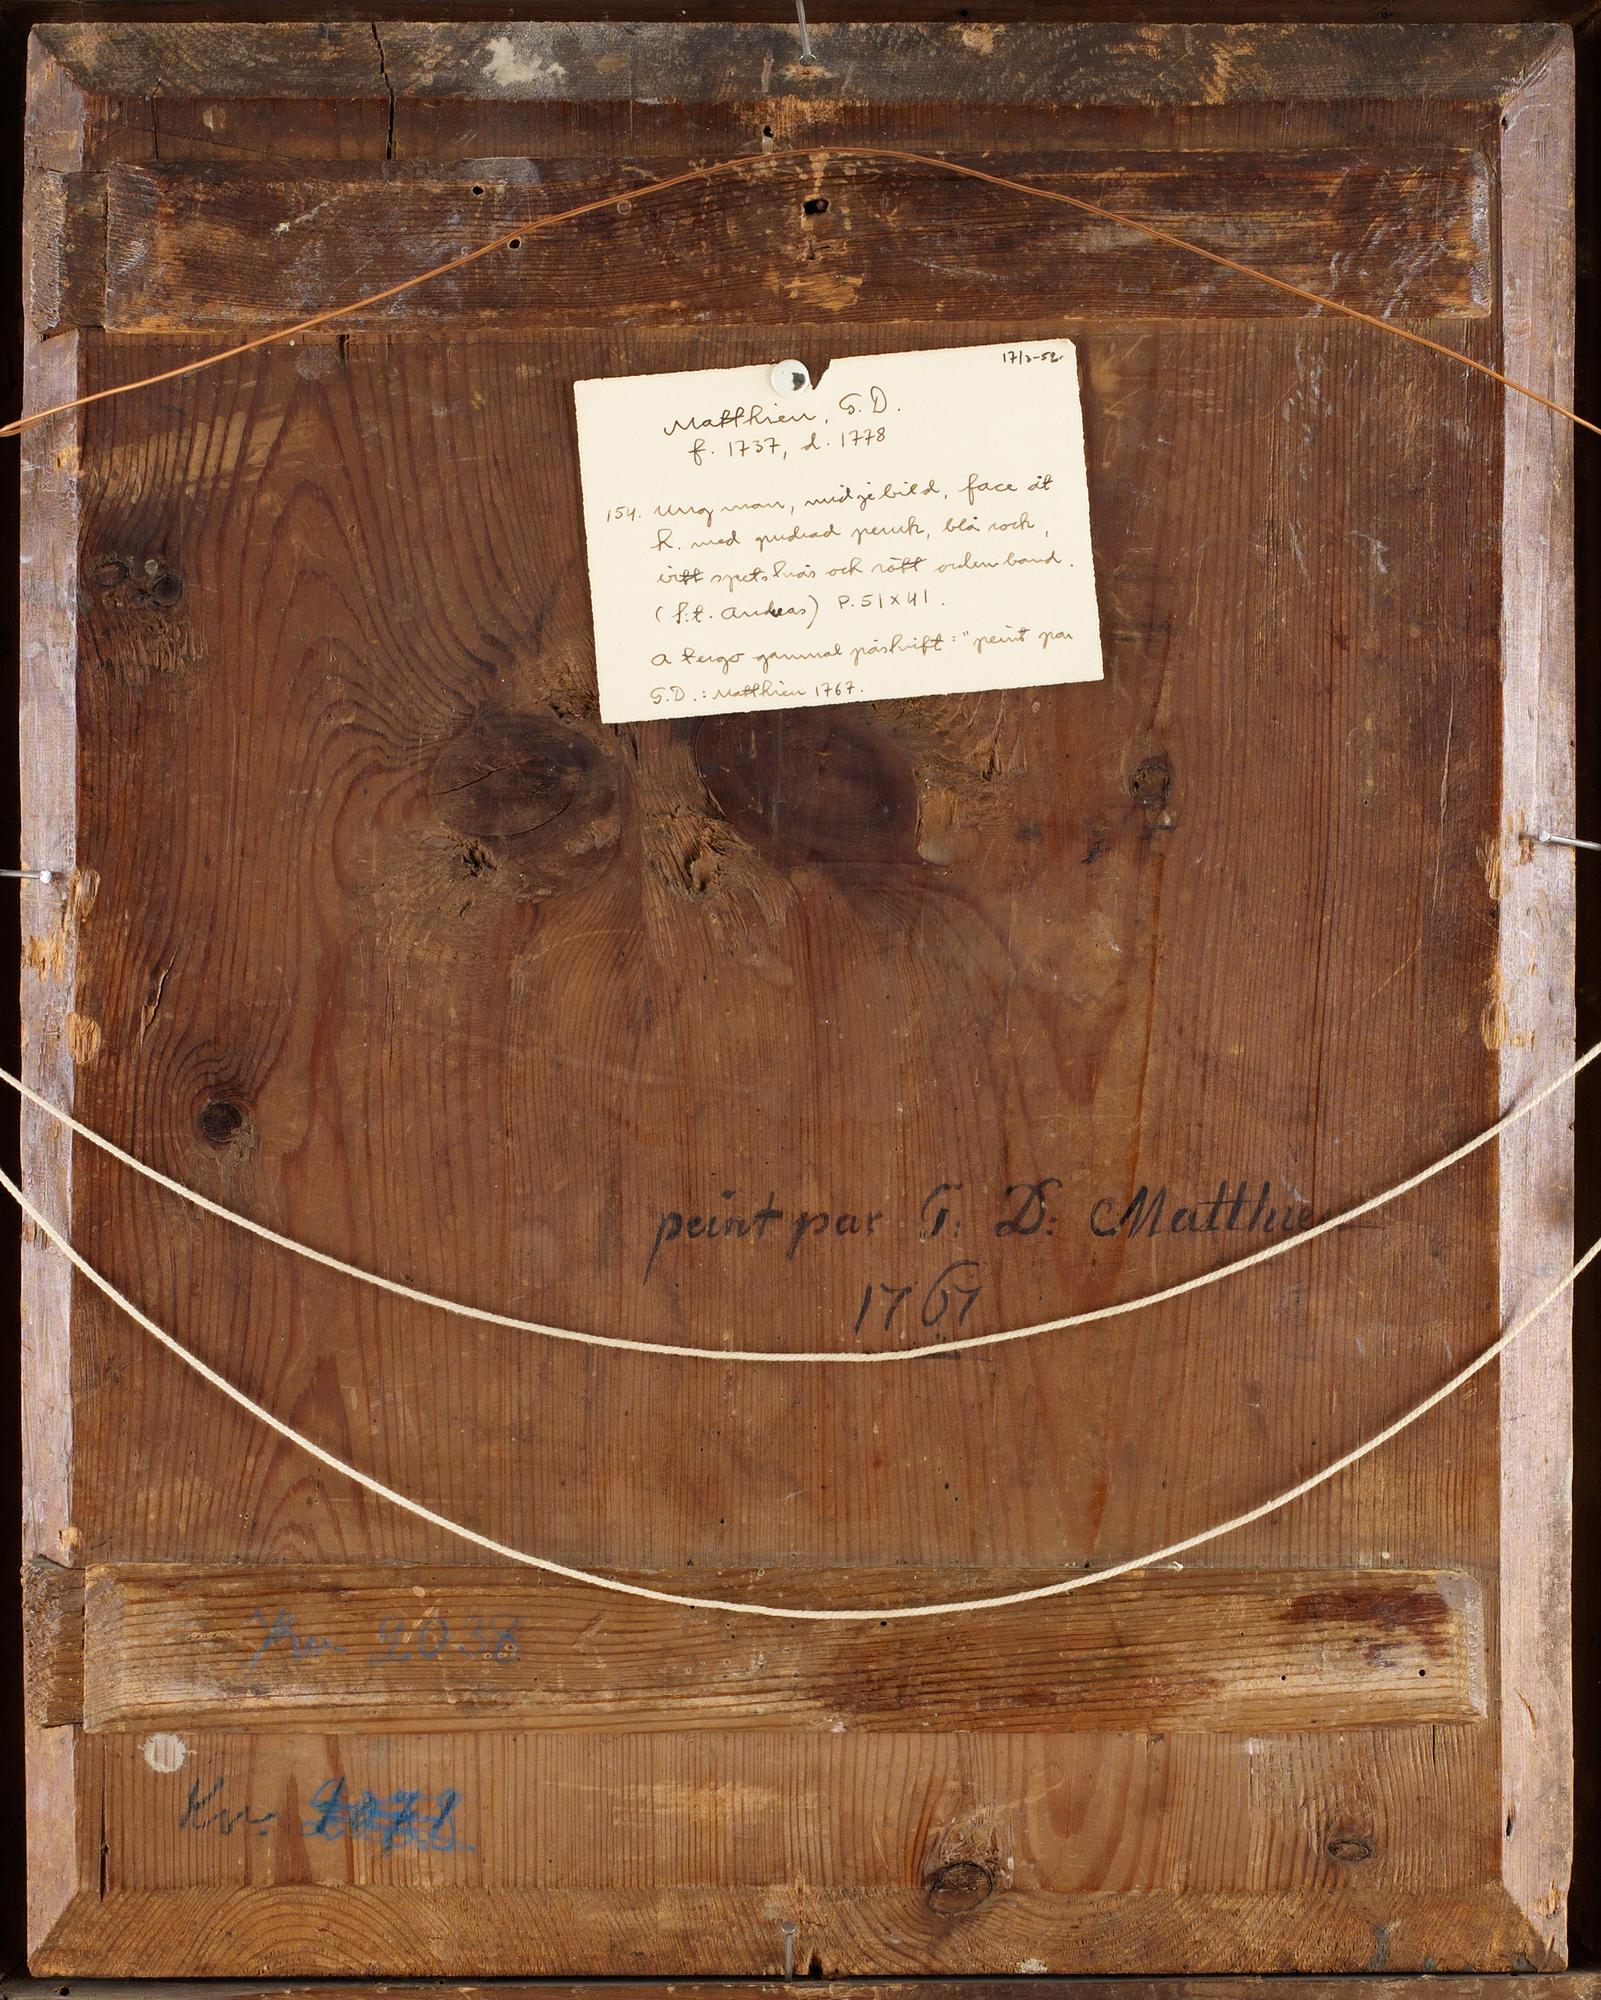 17/3-52.
Matthieu, G.D.
f. 1737, d. 1778
154. Ung man, midjebild, face åt
h. med pudrad peruk, blå rock,
vitt spetskrås och rött ordensband.
(S:t. Andreas) P. 51 x 41.
A tergo gammal påskrift: "peint par
G.D.: Matthieu 1767.
peint par G: D: Matthieu
1767
2038